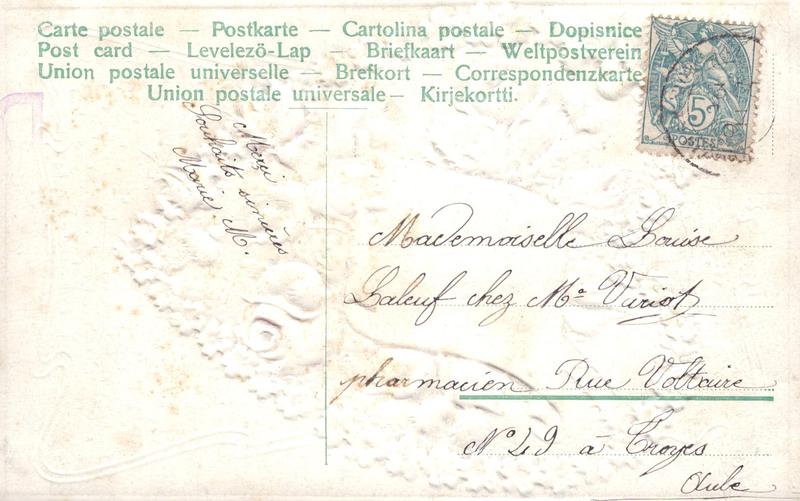 Carte postale — Postkarte — Cartolina postale — Dopisnice
Post card — Levelező-Lap — Briefkaart — Weltpostverein
Union postale universelle — Brefkort — Correspondenzkarte
Union postale universale — Kirjekortti.
5
POSTES
Merci
Souhaits sincères
Marie M.
Mademoiselle Louise
Laleuf chez Mᵉ Viriot
pharmacien Rue Voltaire
Nº 49 à Troyes
Aube